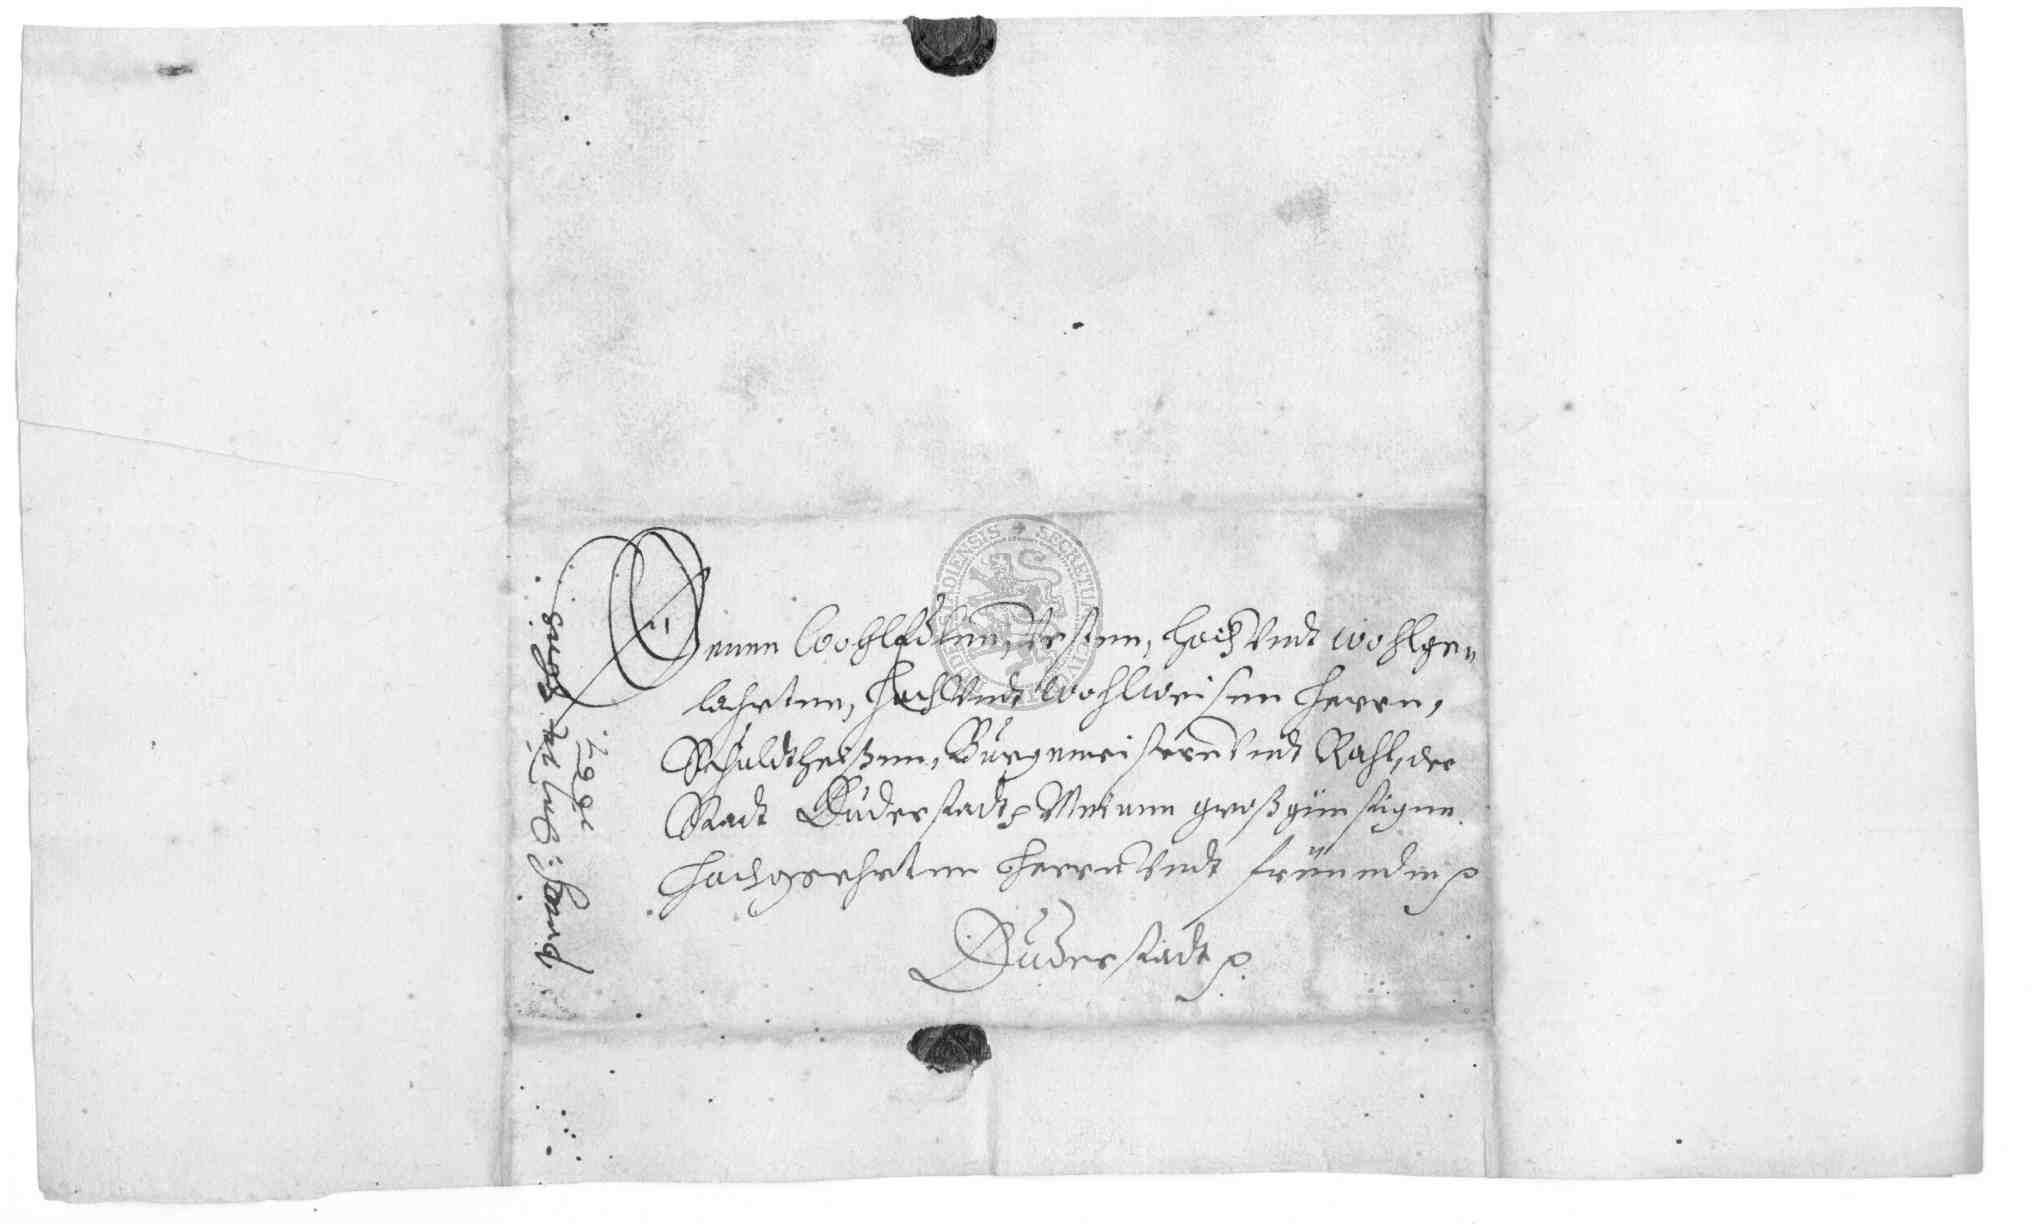 Denen WohlEdlen, Vesten, Hoch Vndt Wohlge„
lahrten, Hoch Vndt Wohlweisen Herrn,
Schuldtheißen, Bürgemeistern Vndt Raht, der
Stadt Duderstadt Meinen großgünstigen
Hochgeehrten Herrn Vndt fründen
Duderstadt
SECRETUM